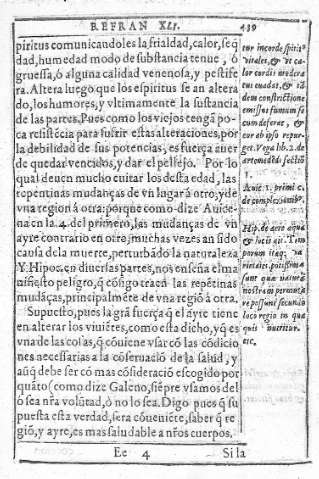 REFRAN XLI. 439
piritus comunicandoles la frialdad, calor, seq̃
dad, humedad modo de substancia tenue, ó
gruessa, ò alguna calidad venenosa, y pestife
ra. Altera luego que los espiritus se an altera
do, los humores, y vltimamente la sustancia
de las partes. Pues como los viejos tengã po-
ca resistẽcia para sufrir estas alteraciones, por
la debilidad de sus potencias, es fuerça auer
de quedar vencidos, y dar el pellejo. Por lo
qual deuen mucho euitar los desta edad, las
repentinas mudanças de vn lugar à otro, y de
vna region á otra: porque como dize Auice-
na en la 4. del primero, las mudanças de vn
ayre contrario en otro, muchas vezes an sido
causa de la muerte, perturbãdo la naturaleza
Y Hipoc. en diuersas partes, nos enseña el ma
nifiesto peligro, q̃ cõsigo traen las repẽtinas
mudãças, principalmẽte de vna regiõ à otra.
Supuesto, pues la grã fuerça q̃ el ayre tiene
en alterar los viuiẽtes, como esta dicho, yq̃ es
vna de las cosas, q̃ cõuiene vsar cõ las cõdicio
nes necessarias a la cõseruaciõ de la salud, y
aũq̃ debe ser cõ mas cõsideraciõ escogido por
quãto (como dize Galeno, siẽpre vsamos del
ò sea nr̃a volũtad, ò no lo sea. Digo pues q̃ su
puesta esta verdad, sera cõueniẽte, saber q̃ re
giõ, y ayre, es mas saludable a nr̃os cuerpos.
tur incorde spiritus
vitales, & vt ca-
lor cordis modera
tus euadat, & id
dem constrictione
emissus fumum se
cum deferat, &
cor ab ipso repur-
get. Vega lib. 2. de
arte medẽdi sectiõ
1.
Auic. 1. primi c.
de complexionib°.
Hip. de aere aqua
& locis ait. Tem
porum
potissima
nostram
re possunt secundũ
loco regio in qua
quis nutritur.
etc.
Ee 4 Si la